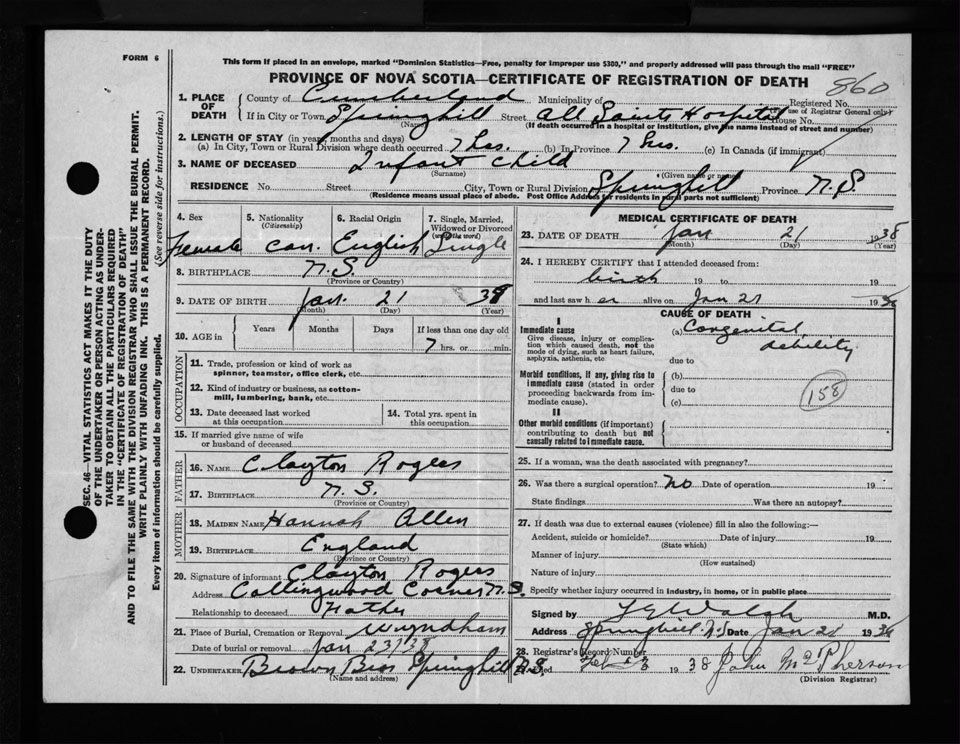 FORM 6
This form if placed in an envelope, marked "Dominion Statistics—Free, penalty for improper use $300," and properly addressed will pass through the mail "FREE"
PROVINCE OF NOVA SCOTIA—CERTIFICATE OF REGISTRATION OF DEATH
860
1. PLACE OF DEATH
County of Cumberland Municipality of Registered No.
(use of Registrar General only)
If in City or Town Springhill Street All Saints Hospital House No.
(Name) (If death occurred in a hospital or institution, give the name instead of street and number)
2. LENGTH OF STAY (in years, months and days)
(a) In City, Town or Rural Division where death occurred 7 hrs. (b) In Province 7 hrs. (c) In Canada (if immigrant)
3. NAME OF DECEASED Infant Child
(Surname) (Given name or names)
RESIDENCE No. Street City, Town or Rural Division Springhill Province N.S
(Residence means usual place of abode. Post Office Address for residents in rural parts not sufficient)
4. Sex
Female
5. Nationality
(Citizenship)
Can.
6. Racial Origin
English
7. Single, Married, Widowed or Divorced
(write the word)
Single
8. BIRTHPLACE N.S.
(Province or Country)
9. DATE OF BIRTH Jan. 21 38
(Month) (Day) (Year)
10. AGE in
Years Months Days If less than one day old
7 hrs. or min.
OCCUPATION
11. Trade, profession or kind of work as
spinner, teamster, office clerk, etc.
12. Kind of industry or business, as cotton-
mill, lumbering, bank, etc.
13. Date deceased last worked
at this occupation
14. Total yrs. spent in
this occupation
15. If married give name of wife
or husband of deceased
FATHER
16. NAME Clayton Rogers
17. BIRTHPLACE N.S.
(Province or Country)
MOTHER
18. MAIDEN NAME Hannah Allen
19. BIRTHPLACE England
(Province or Country)
20. Signature of informant Clayton Rogers
Address Collingwood Corner N.S.
Relationship to deceased Father
21. Place of Burial, Cremation or Removal Wyndham
Date of burial or removal Jan 23/38
22. UNDERTAKER Brown Bros Springhill N.S.
(Name and address)
MEDICAL CERTIFICATE OF DEATH
23. DATE OF DEATH Jan 21 1938
(Month) (Day) (Year)
24. I HEREBY CERTIFY that I attended deceased from:
birth 19 to 19
and last saw her alive on Jan 21 1938
CAUSE OF DEATH
I
Immediate cause
Give disease, injury or complica-
tion which caused death, not the
mode of dying, such as heart failure,
asphyxia, asthenia, etc
(a) Congenital
debility
due to
Morbid conditions, if any, giving rise to
immediate cause (stated in order
proceeding backwards from im-
mediate cause).
(b)
due to
(c)
158
II
Other morbid conditions (if important)
contributing to death but not
causally related to immediate cause.
25. If a woman, was the death associated with pregnancy?
26. Was there a surgical operation? No Date of operation 19
State findings Was there an autopsy?
27. If death was due to external causes (violence) fill in also the following:—
Accident, suicide or homicide? Date of injury 19
(State which)
Manner of injury
(How sustained)
Nature of injury
Specify whether injury occurred in industry, in home, or in public place
Signed by J E Walsh M.D.
Address Springhill N.S Date Jan 21 1938
28. Registrar's Record Number
Filed 1938 John McPherson
(Division Registrar)
SEC. 46—VITAL STATISTICS ACT MAKES IT THE DUTY
OF THE UNDERTAKER OR PERSON ACTING AS UNDER-
TAKER TO OBTAIN ALL THE PARTICULARS REQUIRED
IN THE "CERTIFICATE OF REGISTRATION OF DEATH"
AND TO FILE THE SAME WITH THE DIVISION REGISTRAR WHO SHALL ISSUE THE BURIAL PERMIT.
WRITE PLAINLY WITH UNFADING INK. THIS IS A PERMANENT RECORD.
Every item of information should be carefully supplied. (See reverse side for instructions.)